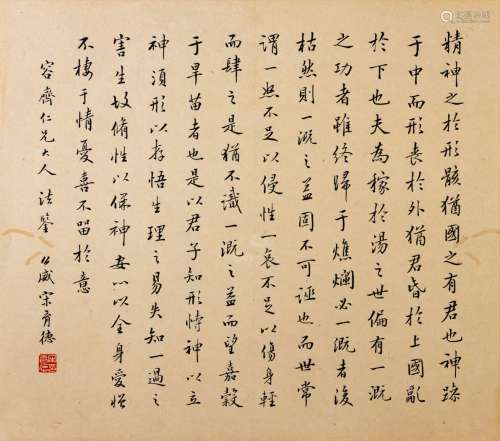 精神之於形骸猶國之有君也神躁
于中而形喪於外猶君昏於上國亂
於下也夫為稼於湯之世偏有一溉
之功者雖終歸于燋爛必一溉者後
枯然則一溉之益固不可誣也而世常
謂一怒不足以侵性一哀不足以傷身輕
而肆之是猶不識一溉之益而望嘉穀
于旱苗者也是以君子知形恃神以立
神須形以存悟生理之易失知一過之
害生故脩性以保神安心以全身愛憎
不棲于情憂喜不留於意
容齊仁兄大人法鑒 公威宋育德